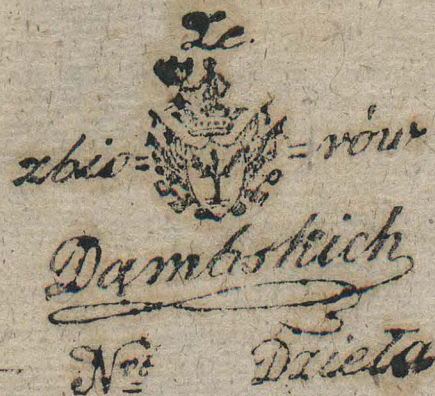 Ze
zbio= =rów
Dąmbskich
Nro Dzieła